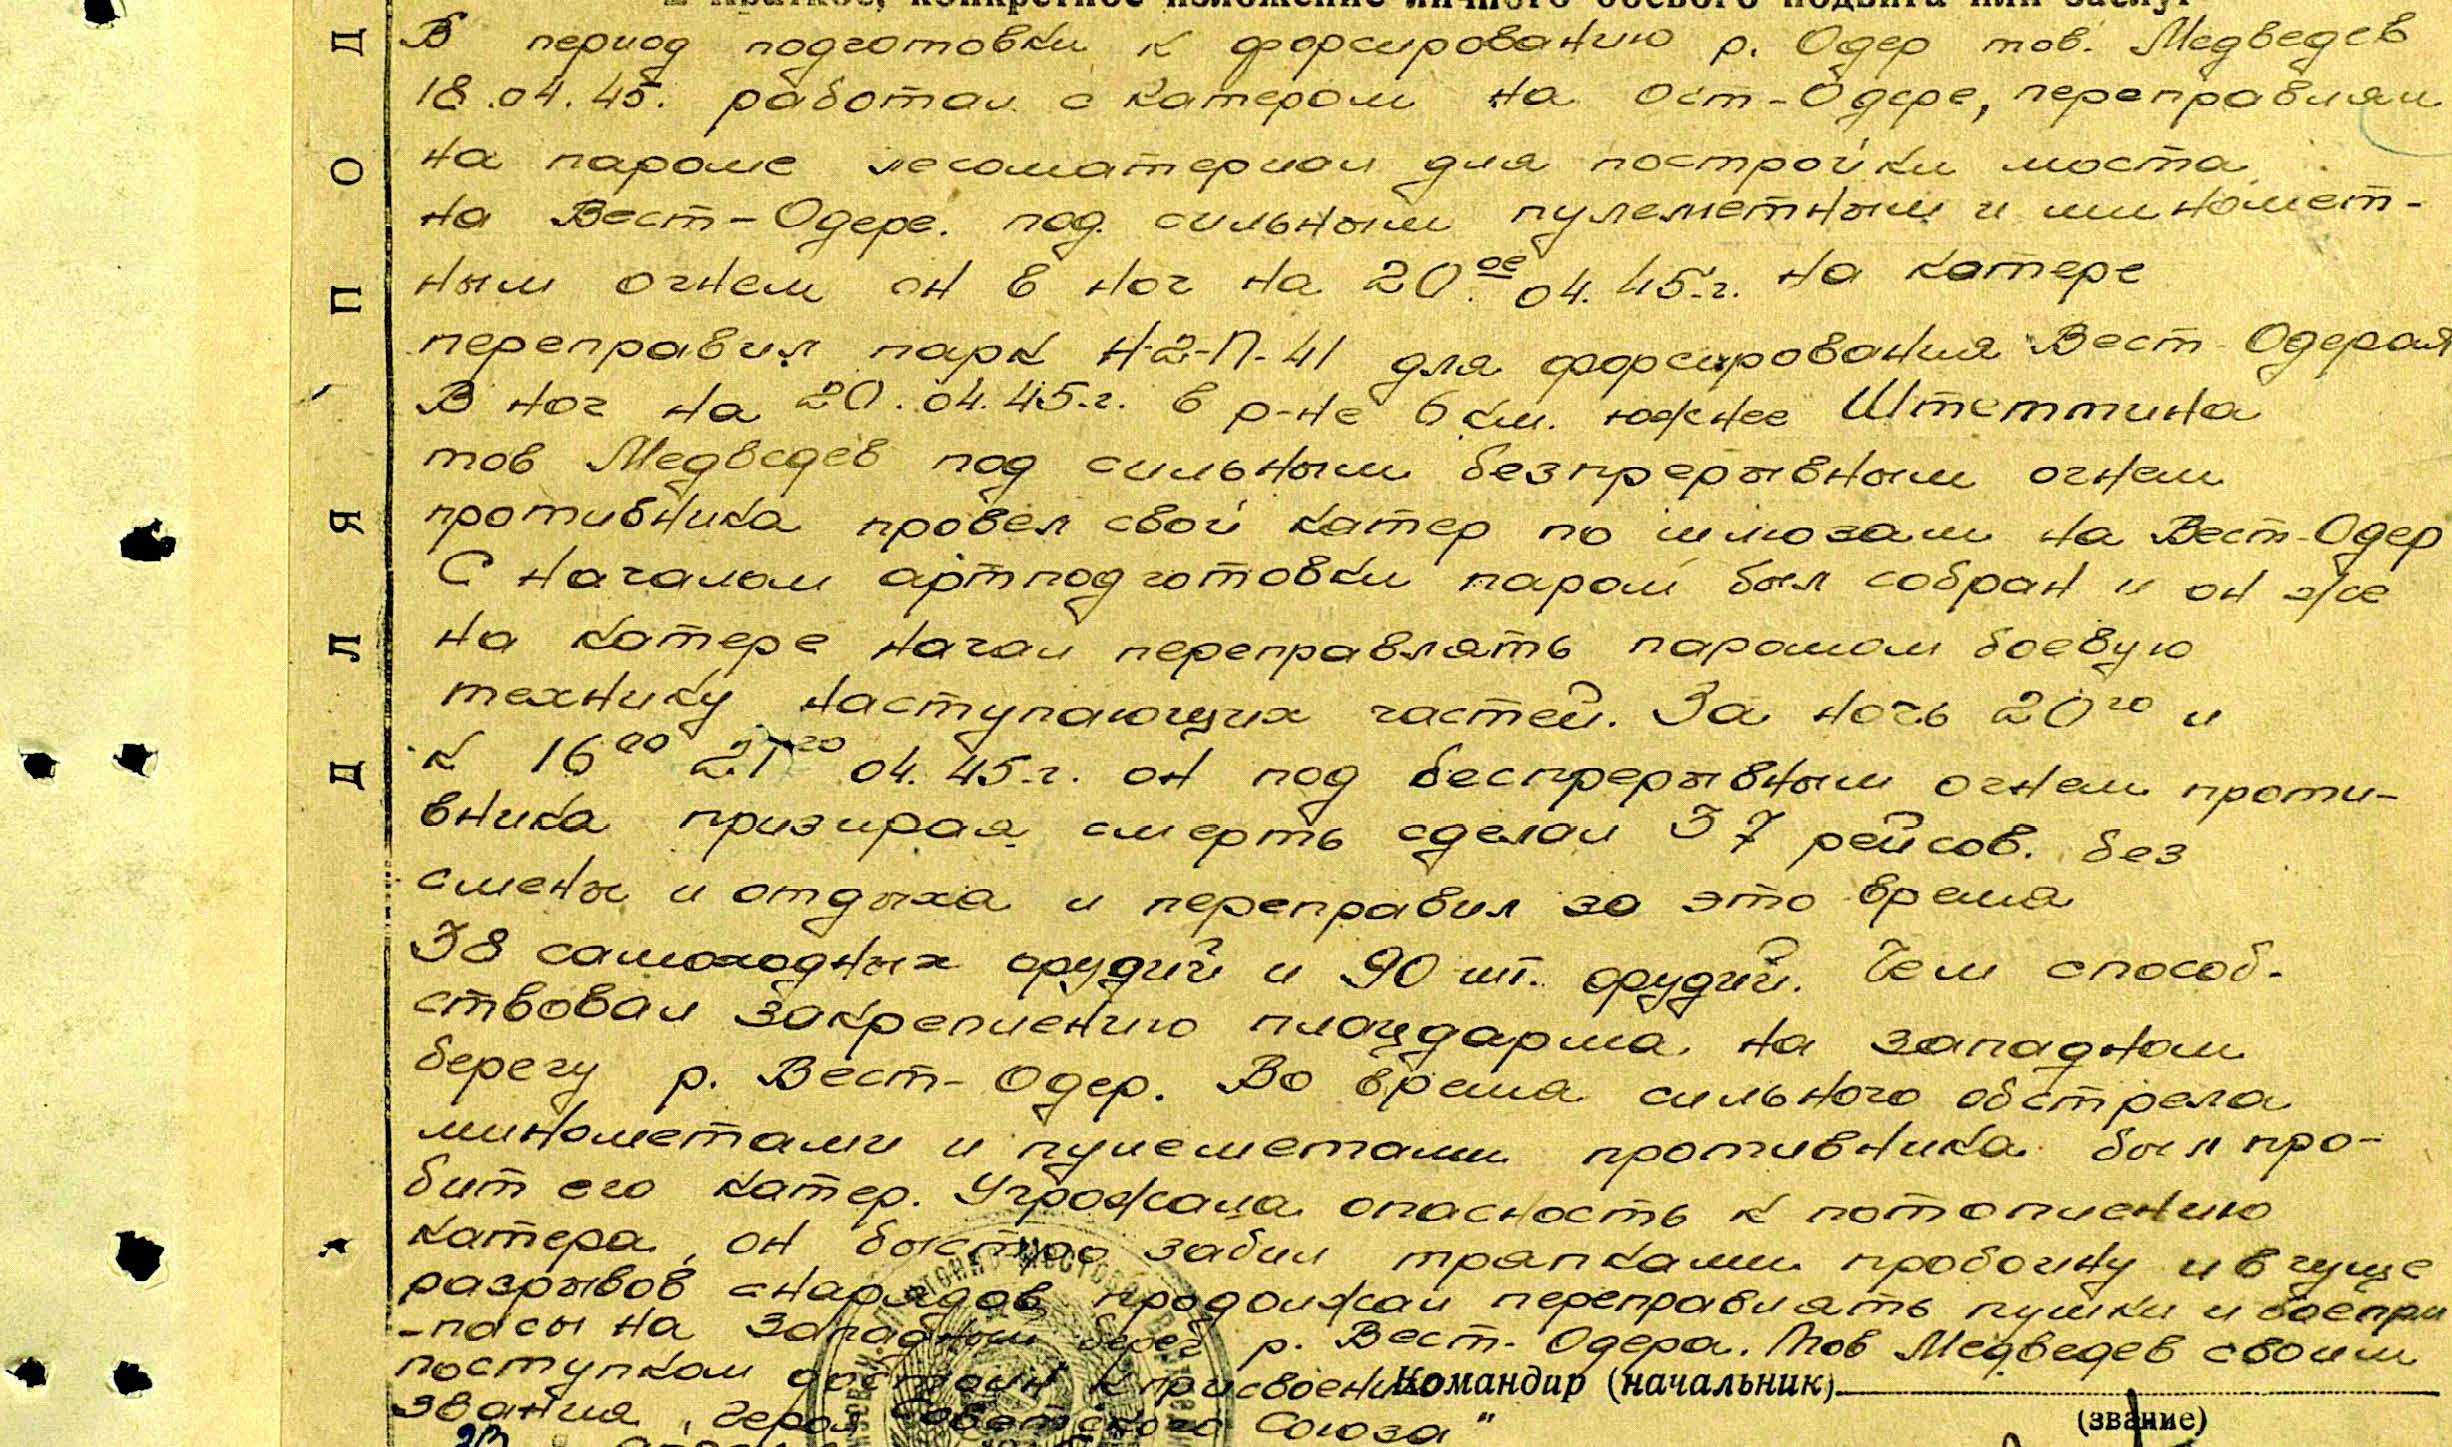 Краткое, конкретное изложение личного боевого подвига или заслуг
В период подготовки к форсированию р. Одер тов. Медведев
18.04.45. работал с катером на Ост-Одере, переправлял
на пароме лесоматериал для постройки моста
на Вест-Одере. под сильным пулеметным и миномет-
ным огнем он в ноч на 20.ое 04.45.г. на катере
переправил парк Н-2-П-41 для форсирования Вест Одера
В ноч на 20.04.45.г. в р-не 6 км. южнее Штеттина
тов Медведев под сильным безпрерывным огнем
противника провел свой катер по шлюзам на Вест-Одер
С началом артподготовки паром был собран и он же
на катере начал переправлять паромом боевую
технику наступающих частей. За ночь 20го и
к 16 00 21го 04.45.г. он под беспрерывным огнем проти-
вника призирая смерть сделал 37 рейсов. без
смены и отдыха и переправил за это время
38 самоходных орудий и 90 шт. орудий. Чем способ-
ствовал закреплению плацдарма на западном
берегу р. Вест-Одер. Во время сильного обстрела
минометами и пулеметами противника был про-
бит его катер. Угрожала опасность к потоплению
катера, он быстро забил тряпками пробоину и в гуще
разрывов снарядов продолжал переправлять пушки и боепри
-пасы на западный берег р. Вест-Одера. Тов Медведев своим
поступком достоин к присвоению
Командир (начальник)
звания „Героя Советского Союза"
(звание)
ДЛЯ ПОД